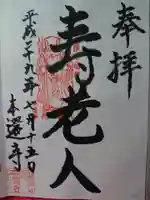 奉拝
寿老人
平成二十九年七月十五日
本遠寺